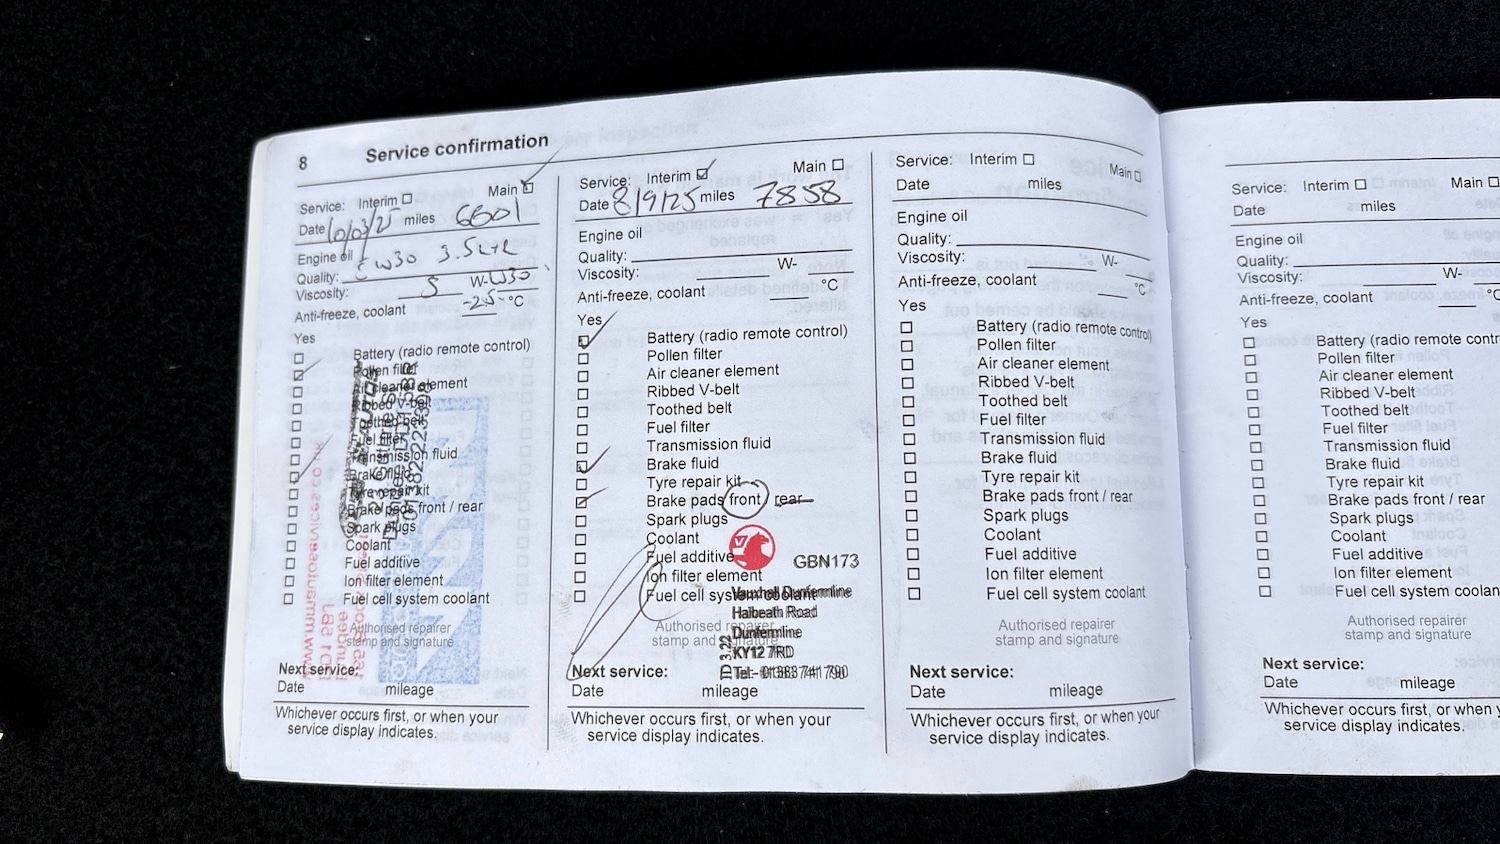 8 Service confirmation
Service: Interim Main
Date 10/03/25 miles 6601
Engine oil
Quality: 3.5
Viscosity: 5 W-
Anti-freeze, coolant -25 °C
Yes
Battery (radio remote control)
Pollen filter
Air cleaner element
Ribbed V-belt
Toothed belt
Fuel filter
Transmission fluid
Brake fluid
Tyre repair kit
Brake pads front / rear
Spark plugs
Coolant
Fuel additive
Ion filter element
Fuel cell system coolant
Authorised repairer
stamp and signature
www.mmautoservices.co.uk
DD1 5BJ
Dundee
Next service:
Date mileage
Whichever occurs first, or when your
service display indicates.
Service: Interim Main
Date 8/9/25 miles 7858
Engine oil
Quality:
Viscosity: W-
Anti-freeze, coolant °C
Yes
Battery (radio remote control)
Pollen filter
Air cleaner element
Ribbed V-belt
Toothed belt
Fuel filter
Transmission fluid
Brake fluid
Tyre repair kit
Brake pads front / rear
Spark plugs
Coolant
Fuel additive
Ion filter element
Fuel cell system coolant
GBN173
Vauxhall Dunfermline
Halbeath Road
Dunfermline
KY12 7RD
Tel:- 01383 741 790
ID 3.22
Authorised repairer
stamp and signature
Next service:
Date mileage
Whichever occurs first, or when your
service display indicates.
Service: Interim Main
Date miles
Engine oil
Quality:
Viscosity: W-
Anti-freeze, coolant °C
Yes
Battery (radio remote control)
Pollen filter
Air cleaner element
Ribbed V-belt
Toothed belt
Fuel filter
Transmission fluid
Brake fluid
Tyre repair kit
Brake pads front / rear
Spark plugs
Coolant
Fuel additive
Ion filter element
Fuel cell system coolant
Authorised repairer
stamp and signature
Next service:
Date mileage
Whichever occurs first, or when your
service display indicates.
Service: Interim Main
Date miles
Engine oil
Quality:
Viscosity: W-
Anti-freeze, coolant °C
Yes
Battery (radio remote contr
Pollen filter
Air cleaner element
Ribbed V-belt
Toothed belt
Fuel filter
Transmission fluid
Brake fluid
Tyre repair kit
Brake pads front / rear
Spark plugs
Coolant
Fuel additive
Ion filter element
Fuel cell system coolan
Authorised repairer
stamp and signature
Next service:
Date mileage
Whichever occurs first, or when y
service display indicates.